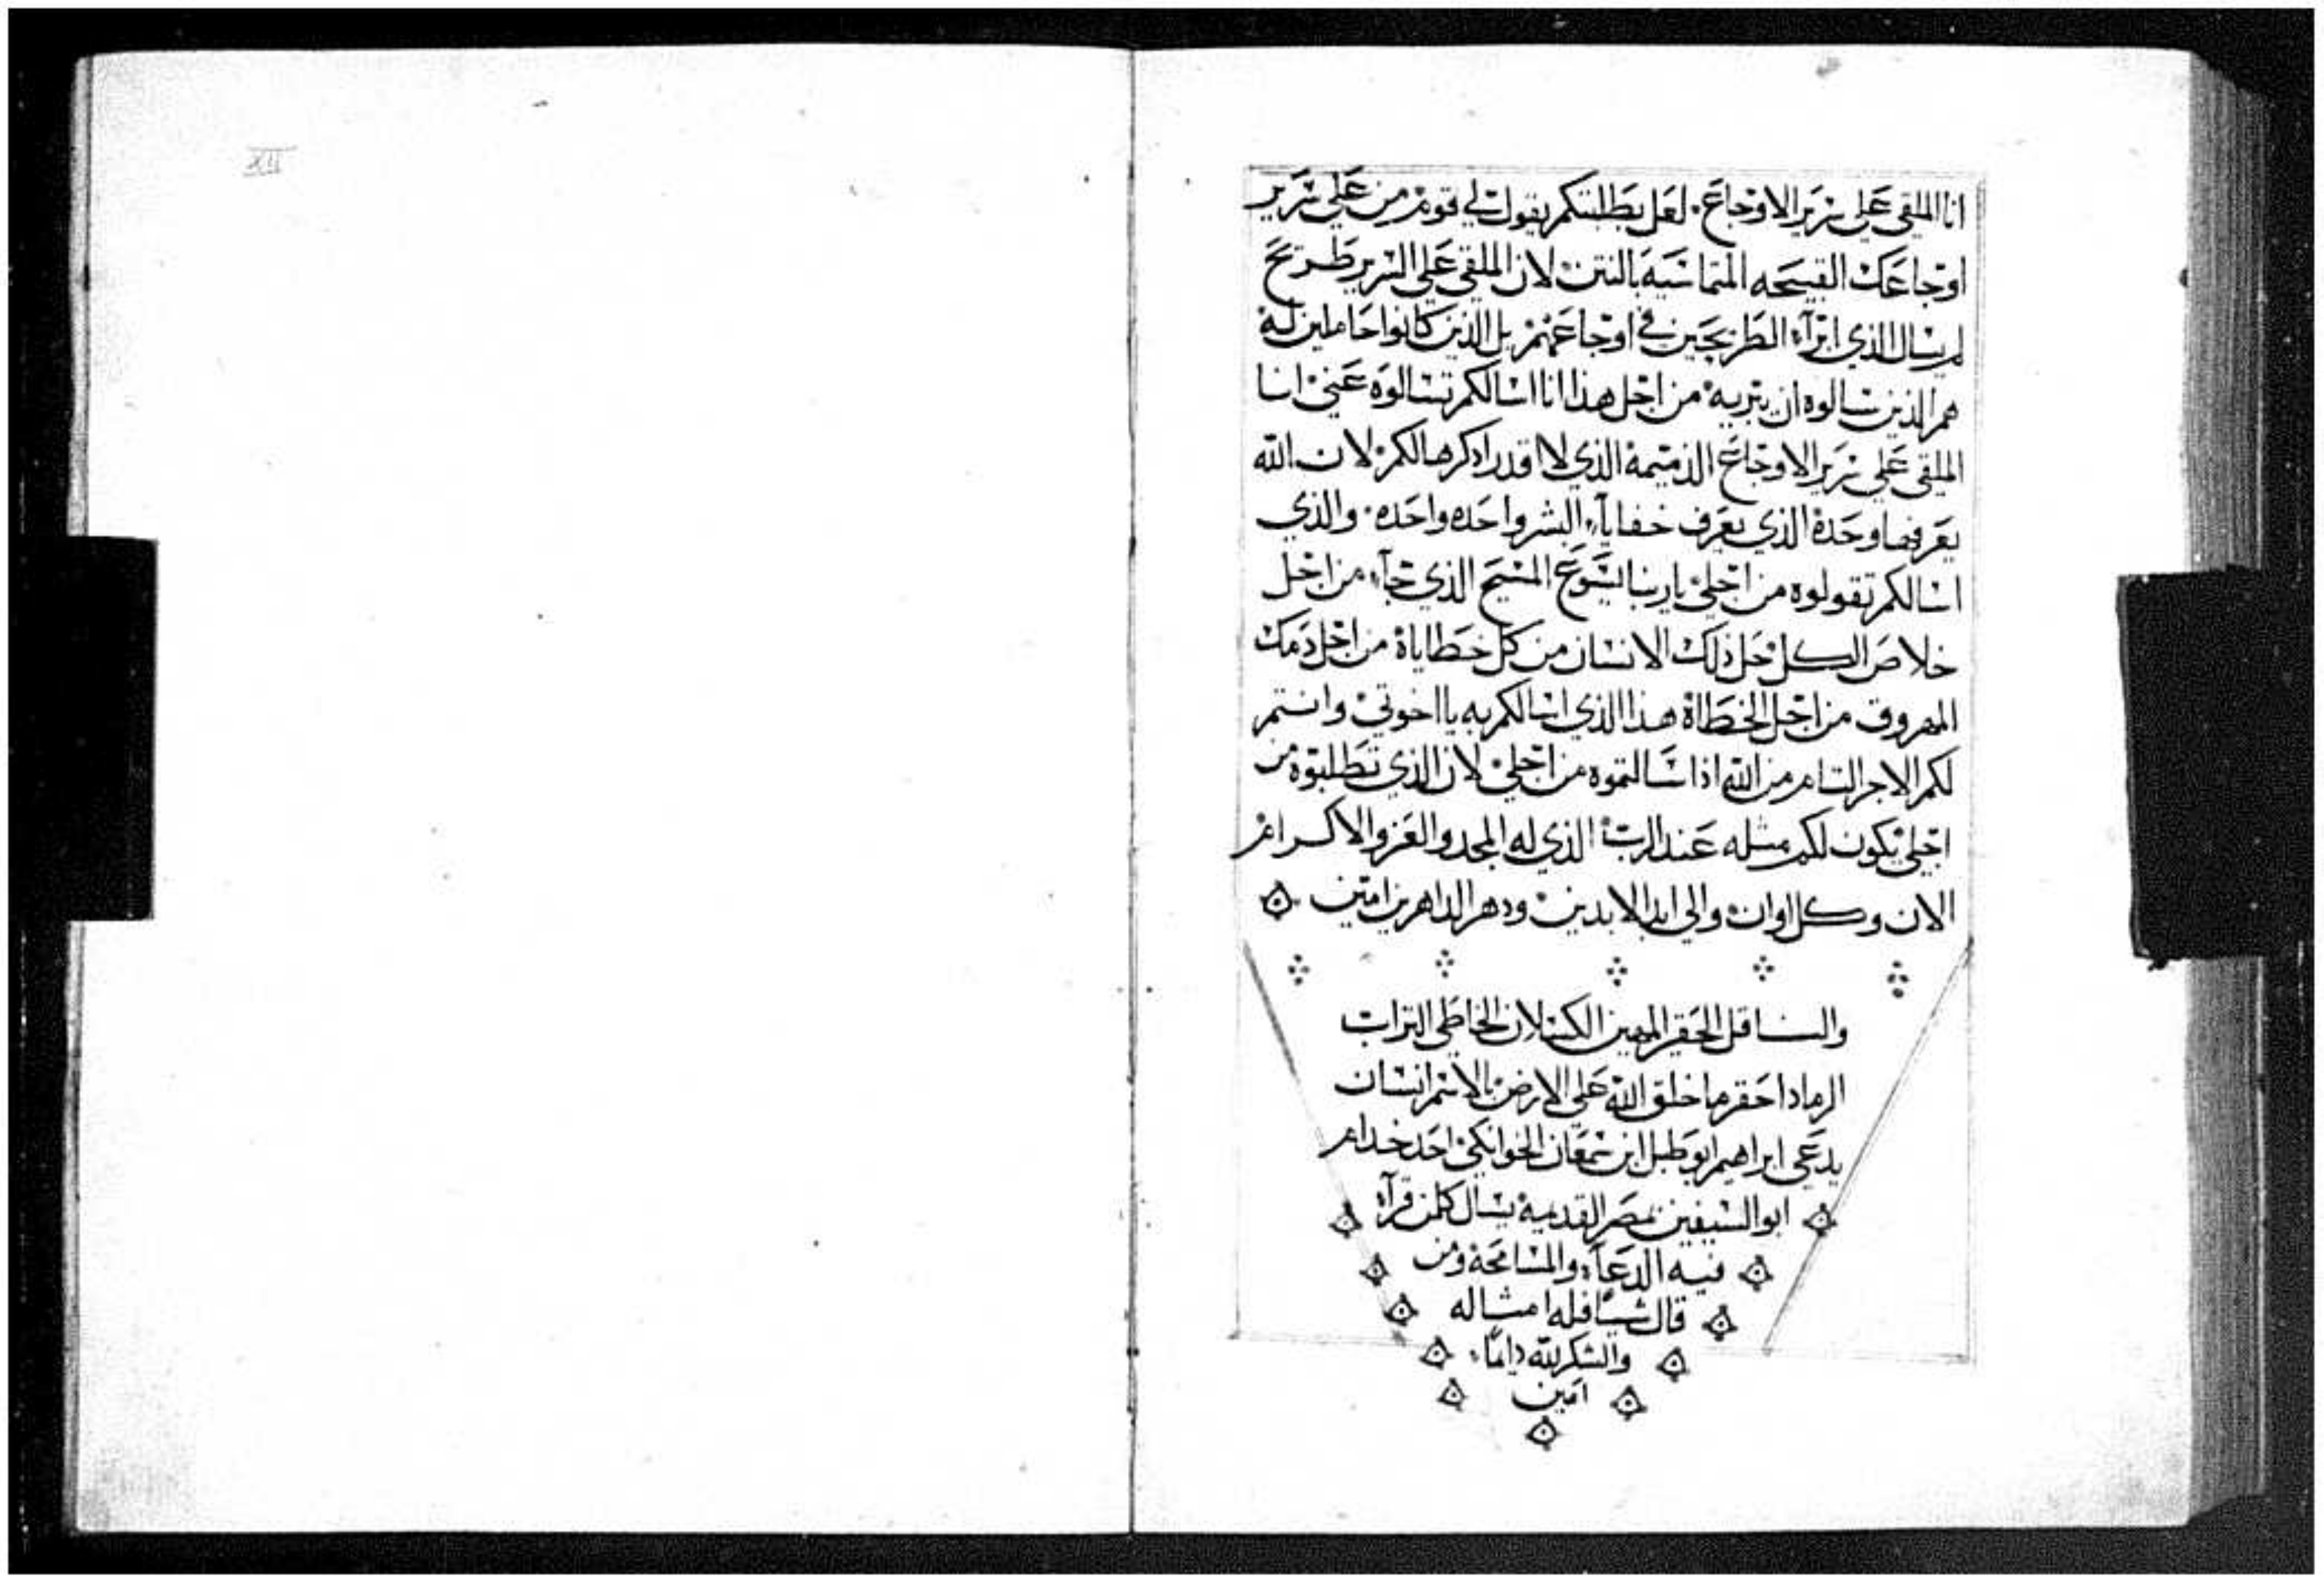 XII
انا الملقي علي سرير الاوجاع. لعل بطلبتكم يقول لي قوم من علي سرير
اوجاعك القبيحه بالنتن لان الملقي علي السرير طريح
لم يسال الذي ابرآء الطريحين في اوجاعهم بل الذين كانوا حاملين له
هم الذين سالوه ان يبريه من اجل هذا انا اسالكم تسالوه عني انا
الملقي علي سرير الاوجاع الذميمة الذي لا اقدر اذكرها لكم لان الله
يعرفها وحده الذي يعرف خفايآء البشر واحده واحده. والذي
اسالكم تقولوه من اجلي يا ربنا يسوع المسيح الذي جآء من اجل
خلاص الكل حل ذلك الانسان من كل خطاياه من اجل دمك
المهروق من اجل الخطاة هذا الذي اسالكم به يا اخوتي وانتم
لكم الاجر التام من الله اذا سالتموه من اجلي لان الذي تطلبوه من
اجلي يكون لكم مثله عند الرب الذي له المجد والعز والاكرام
الان وكل اوان والي ابد الابدين ودهر الداهرين امين
والناقل الحقير المهين الكسلان الخاطي التراب
الرماد احقر ما خلق الله علي الارض بالاسم انسان
يدعي ابراهيم ابو طبل ابن سمعان الخوانكي احد خدام
ابو السيفين بمصر القديمة يسال كلمن قرآء
فيه الدعآء والمسامحة ومن
قال شيئا فله امثاله
والشكر لله دايمًا
امين